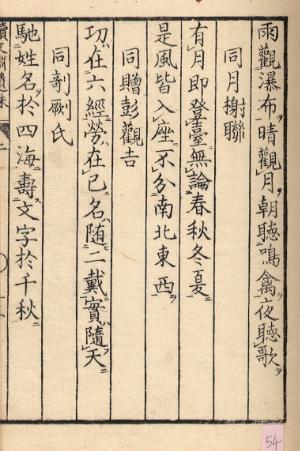 雨觀瀑布晴觀月朝聽鳴禽夜聽歌
同月榭聯
有月即登臺無論春秋冬夏
是風皆入座不分南北東西
同贈彭觀吉
功在六經勞在己名隨二戴實隨天
同剞劂氏
馳姓名於四海壽文字於千秋
54